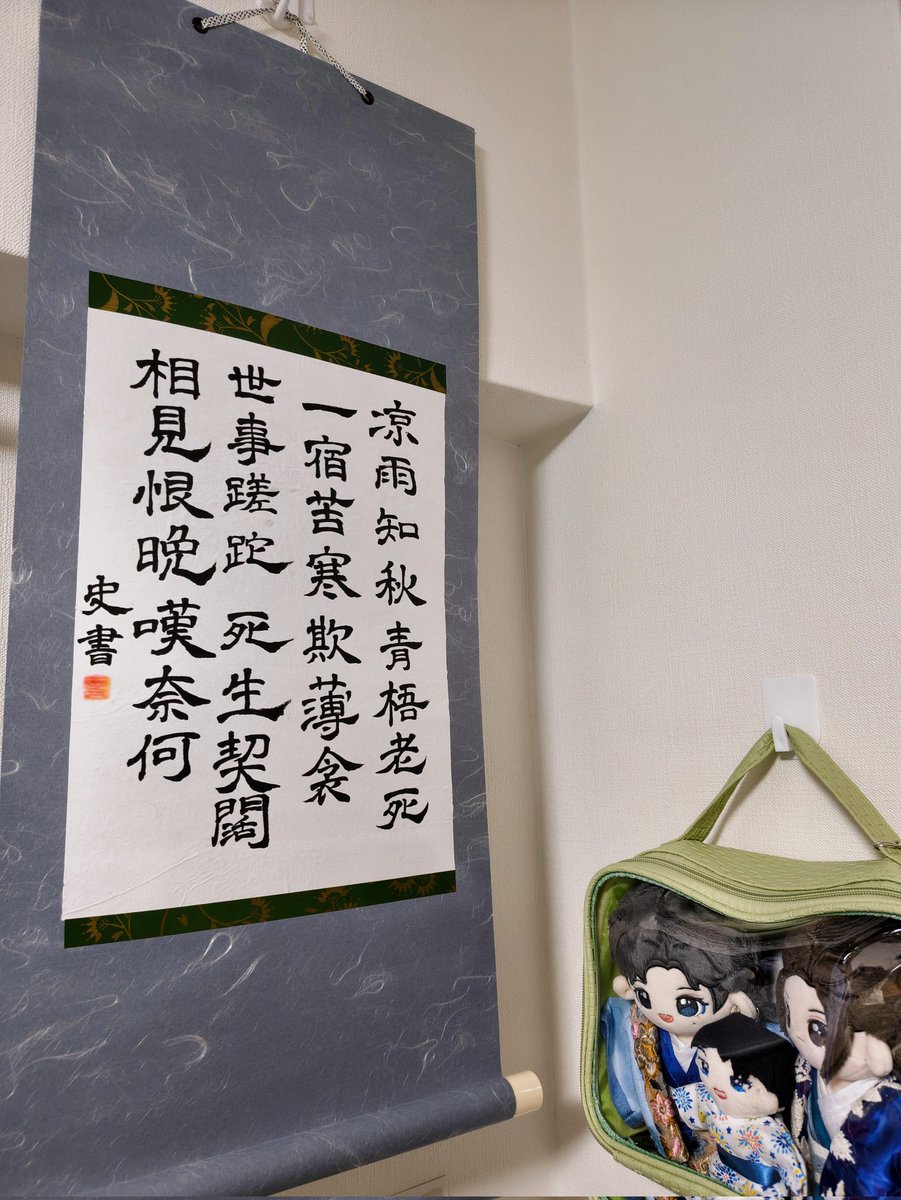 凉雨知秋青梧老死
一宿苦寒欺薄衾
世事蹉跎 死生契闊
相見恨晚嘆奈何
史書